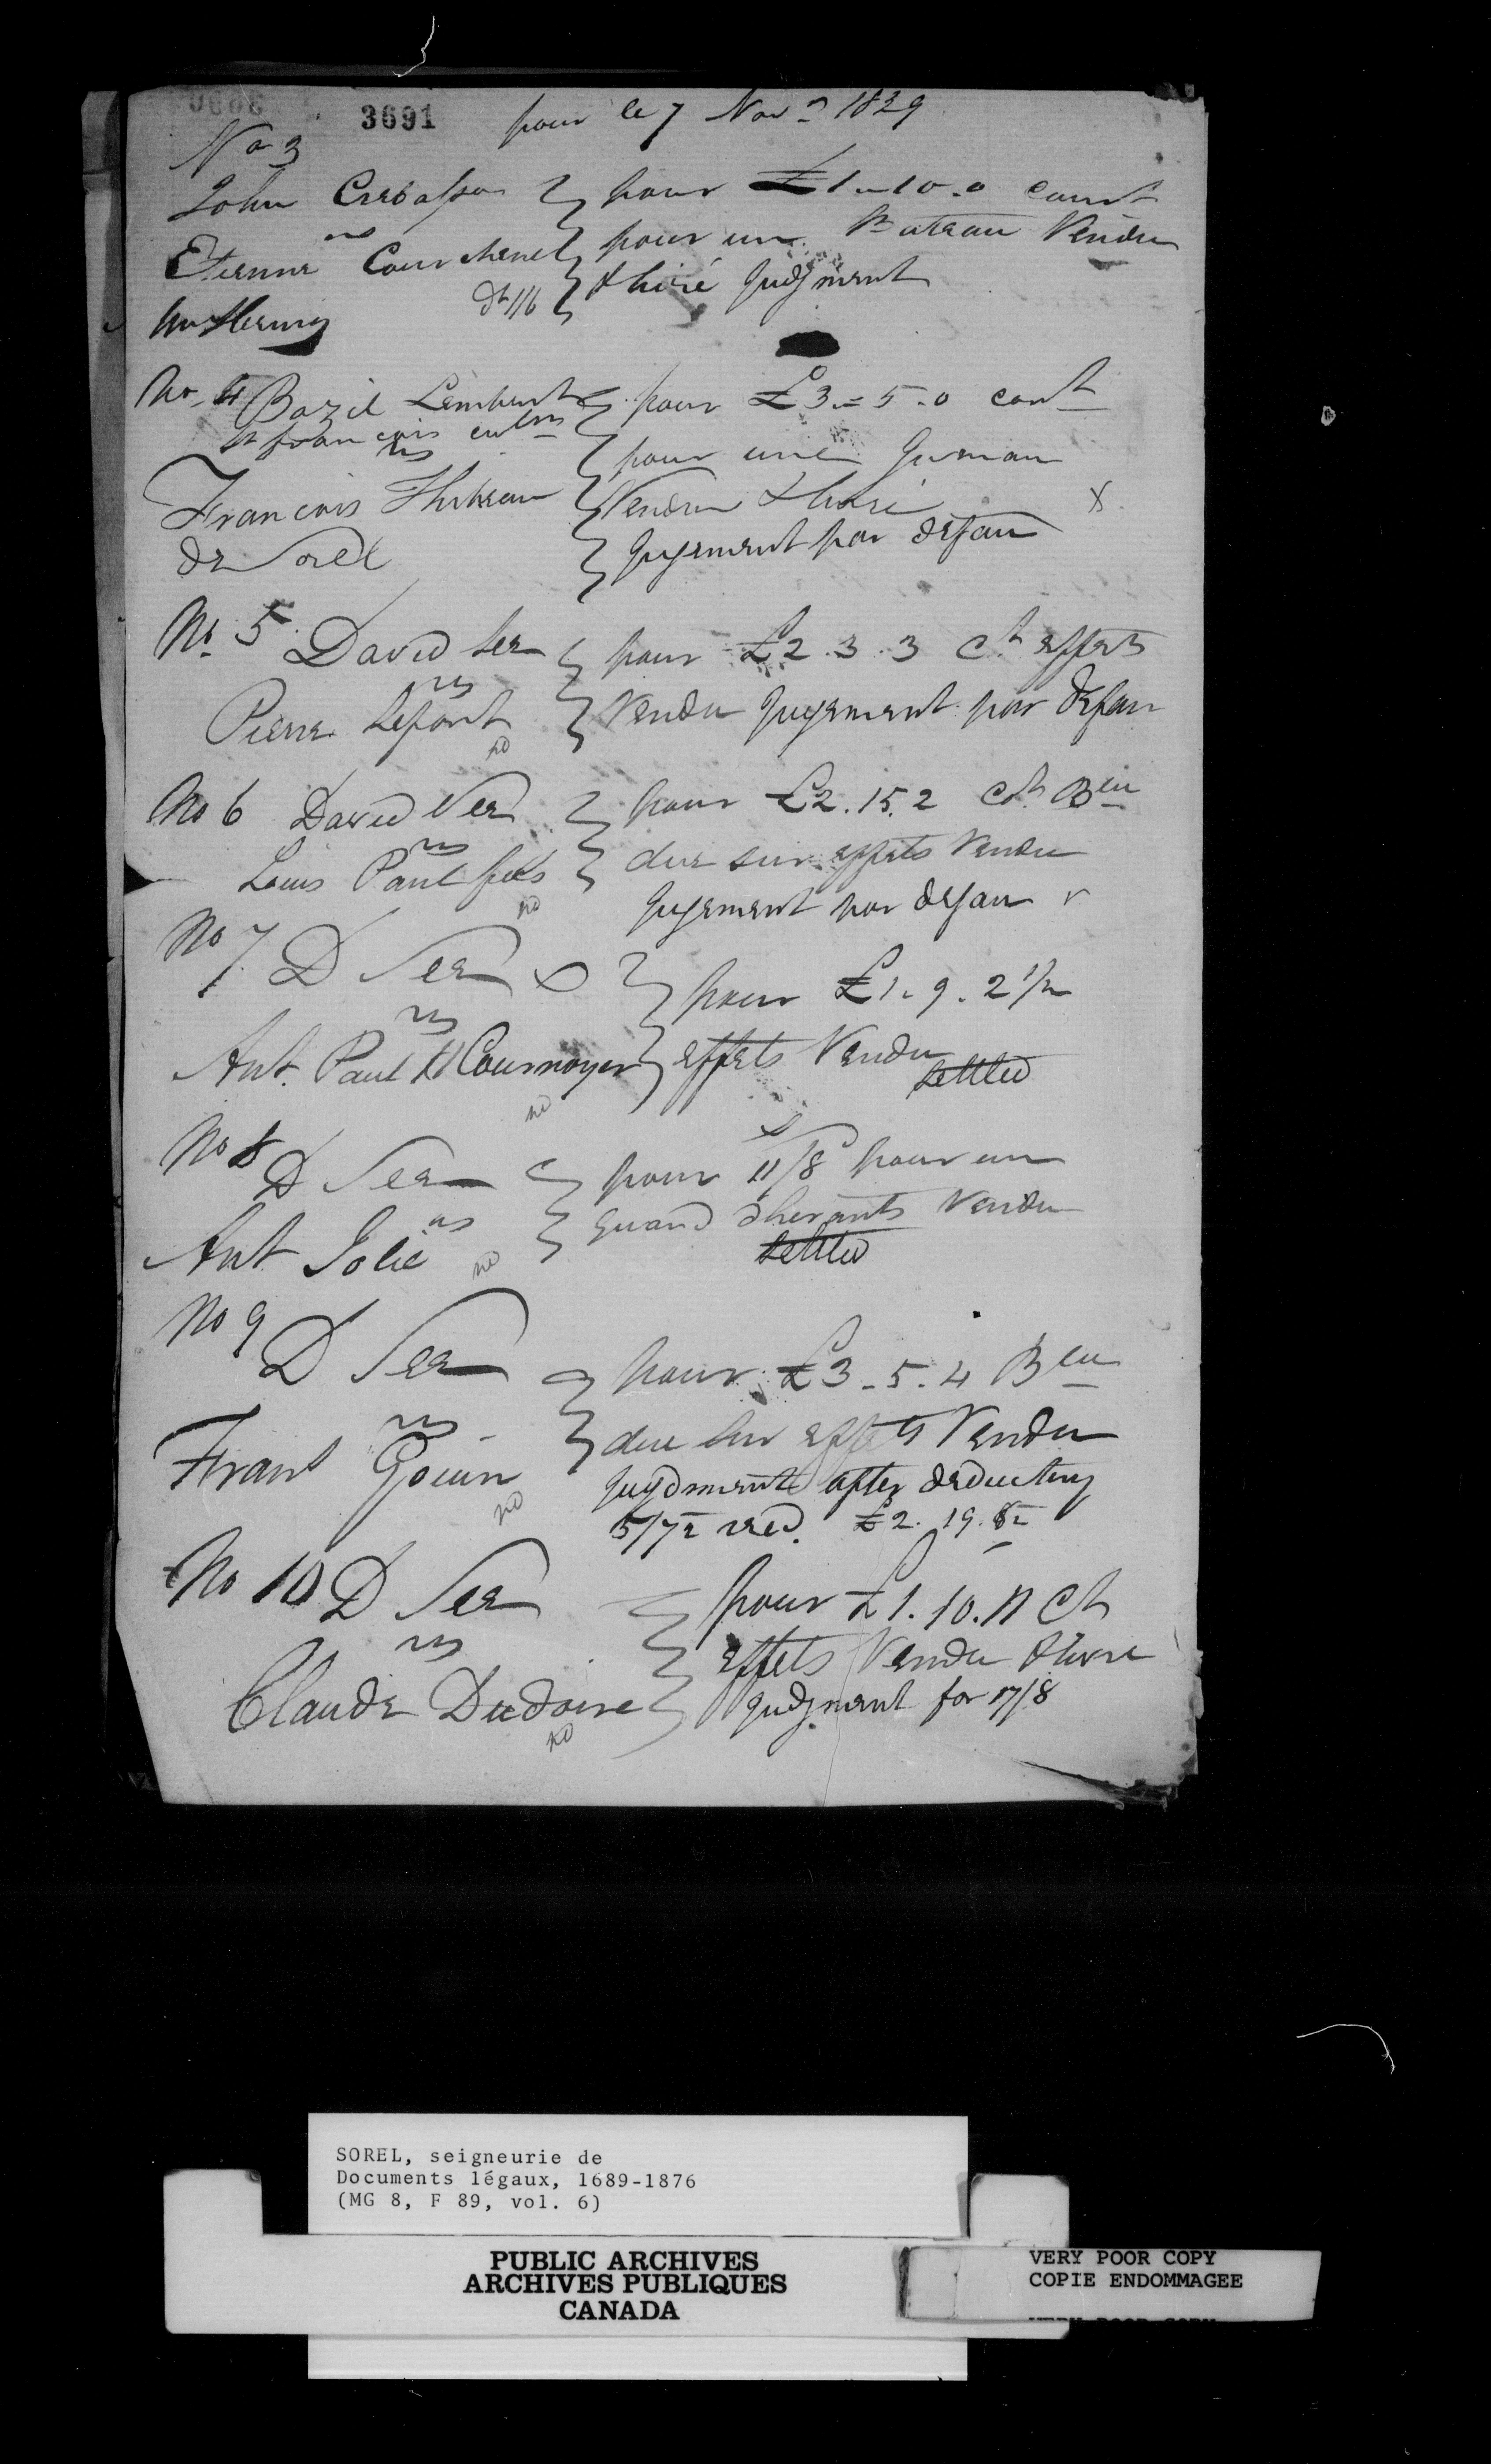 3691 pour le 7 Nov 1829
No 3
John Crebassa pour £1-10-0 courrt
vs pour un Bateau Vendu
Etienne Courchene & livré Judgment
No 4 Bazil Lembert pour £3=5-0 cont
St francois
vs pour une Jument
François Thibeau Vendu & livré X
de Sorel Jugement par defau
No 5 David Lee pour £2.3.3 Ct effets
vs
Pierre Vendu Jugement par defau
no
No 6 David Lee pour £2.15.2 Ct
vs due sur effets Vendu
Louis Paul fils Jugement par defau
no
No 7. D Lee pour £1.9.2 1/2
vs
Ant. Paul Cournoyer effets Vendu
settled
no
No 8 D Lee pour 11/8 pour un
vs Vendu
Ant Jolie settled
no
No 9
D Lee pour £3-5.4
vs due sur effets Vendu
Frans Gouin Jugdment after deducting
no 5/7 £2.19.8
No 10 D Lee pour £1.10.11 Ct
vs effets Vendu & livré
Claude Judgment for 17/8
no
SOREL, seigneurie de
Documents légaux, 1689-1876
(MG 8, F 89, vol. 6)
PUBLIC ARCHIVES
ARCHIVES PUBLIQUES
CANADA
VERY POOR COPY
COPIE ENDOMMAGEE
VERY POOR COPY